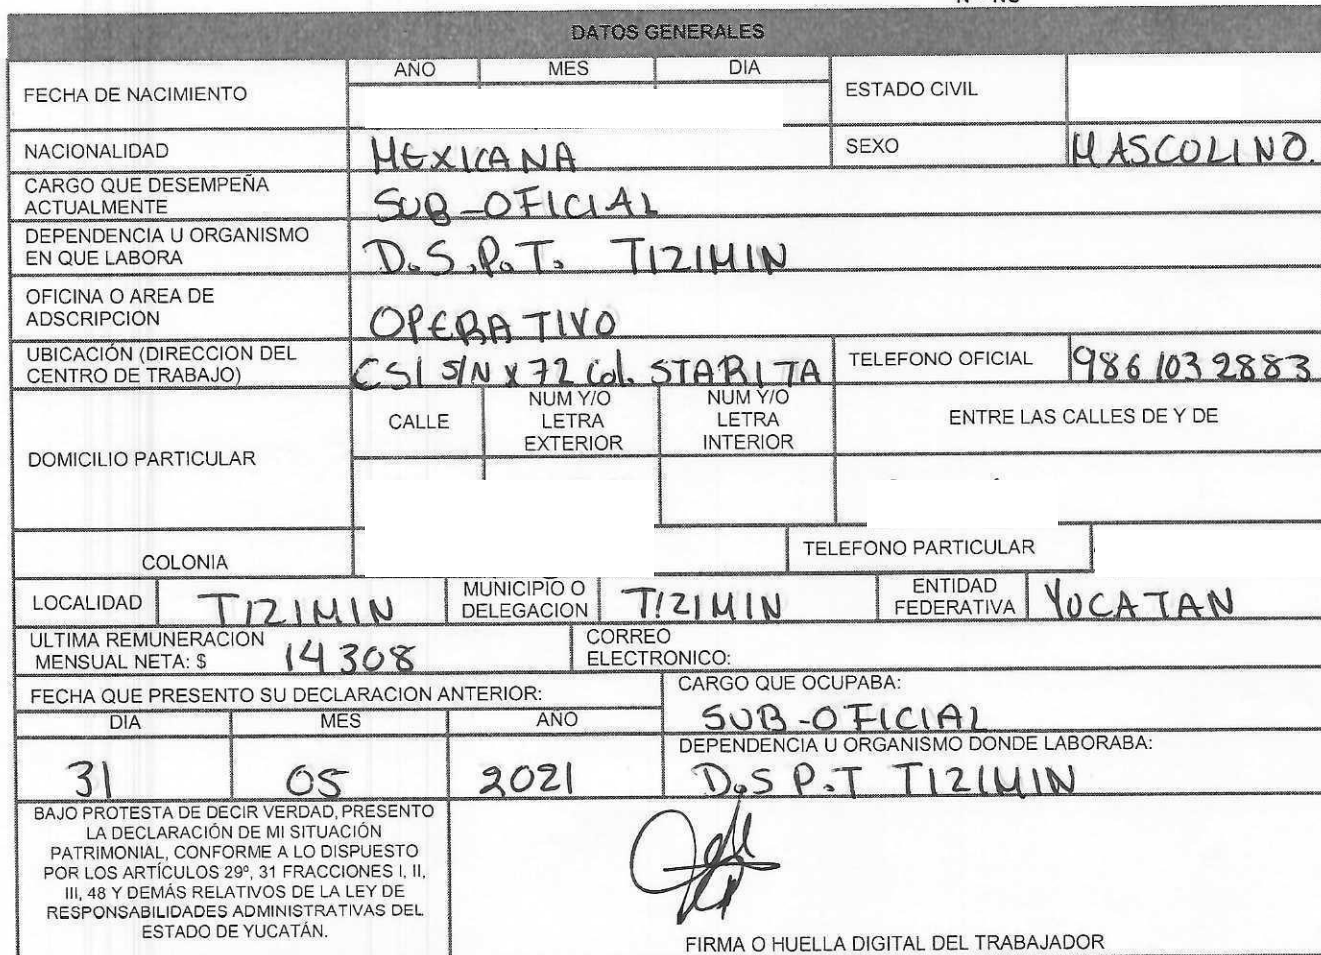 DATOS GENERALES
FECHA DE NACIMIENTO
AÑO MES DIA
ESTADO CIVIL
NACIONALIDAD MEXICANA SEXO MASCOLINO.
CARGO QUE DESEMPEÑA
ACTUALMENTE SUB-OFICIAL
DEPENDENCIA U ORGANISMO
EN QUE LABORA D.S.P.T. TIZIMIN
OFICINA O AREA DE
ADSCRIPCION OPERATIVO
UBICACIÓN (DIRECCION DEL
CENTRO DE TRABAJO) C51 S/N x 72 Col. STARITA TELEFONO OFICIAL 986 103 2883
DOMICILIO PARTICULAR
CALLE
NUM Y/O
LETRA
EXTERIOR
NUM Y/O
LETRA
INTERIOR
ENTRE LAS CALLES DE Y DE
COLONIA TELEFONO PARTICULAR
LOCALIDAD TIZIMIN MUNICIPIO O
DELEGACION TIZIMIN ENTIDAD
FEDERATIVA YUCATAN
ULTIMA REMUNERACION
MENSUAL NETA: $ 14308
CORREO
ELECTRONICO:
FECHA QUE PRESENTO SU DECLARACION ANTERIOR:
DIA MES AÑO
31 05 2021
CARGO QUE OCUPABA:
SUB-OFICIAL
DEPENDENCIA U ORGANISMO DONDE LABORABA:
D.S P.T TIZIMIN
BAJO PROTESTA DE DECIR VERDAD, PRESENTO
LA DECLARACIÓN DE MI SITUACIÓN
PATRIMONIAL, CONFORME A LO DISPUESTO
POR LOS ARTÍCULOS 29º, 31 FRACCIONES I, II,
III, 48 Y DEMÁS RELATIVOS DE LA LEY DE
RESPONSABILIDADES ADMINISTRATIVAS DEL
ESTADO DE YUCATÁN.
FIRMA O HUELLA DIGITAL DEL TRABAJADOR